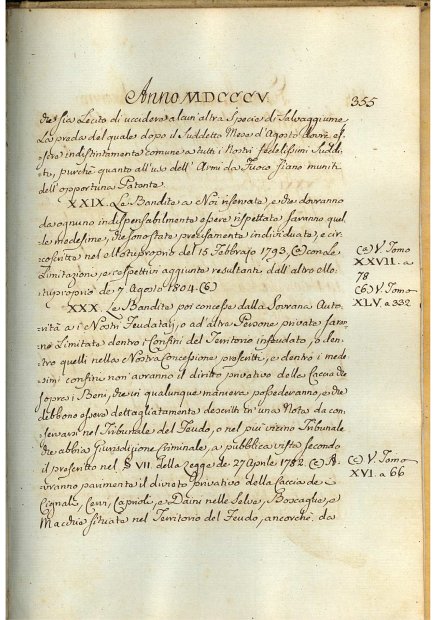 Anno MDCCCV.
355
che sia Lecito di uccidere alcun'altra Specie di Salvaggiume
La preda del quale dopo il Suddetto Mese d'Agosto dovrà es
sere indistintamente comune a tutti i Nostri fedelissimi Suddi
ti, purchè quanto all'uso dell'Armi da Fuoco siano muniti
dell'opportuna Patente.
XXIX. Le Bandite a Noi riservate, e che dovranno
da ognuno indispensabilmente essere rispettate saranno quel
le medesime, che sono state precisamente individuate, e cir
coscritte nel Motuproprio del 15 Febbrajo 1793, (a) con le
Limitazioni, e respettive aggiunte resultanti dall'altro Mo
tuproprio de' 7 Agosto 1804. (b)
(a) V. Tomo
XXVII. a
78
(b) V. Tomo
XLV. a 332
XXX. Le Bandite poi concesse dalla Sovrana Auto
rità a i Nostri Feudatarj, o ad'altre Persone private saran
no Limitate dentro i Confini del Territorio infeudato, o den
tro quelli nella Nostra Concessione prescritti, e dentro i mede
simi confini non avranno il diritto privativo delle Caccie che
sopra i Beni, che in qualunque maniera possederanno, e che
debbono essere dettagliatamente descritti in'una Nota da con
servarsi nel Tribunale del Feudo, o nel più vicino Tribunale
che abbia Giurisdizione Criminale, a pubblica vista secondo
il prescritto nel § VII. della Legge de' 27 Aprile 1782 (c) A
vranno parimente il divieto privativo della Caccia de'
Cignali, Cervi, Caprioli, e Daini nelle Selve, Boscaglie, e
Macchie situate nel Territorio del Feudo, ancorchè da
(c) V. Tomo
XVI. a 66